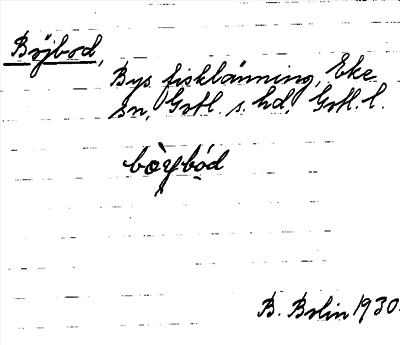 Böjbod,
Bys fisklänning, Eke
sn, Gotl. s. hd, Gotl. l.
bòybód
B. Bolin 1930.